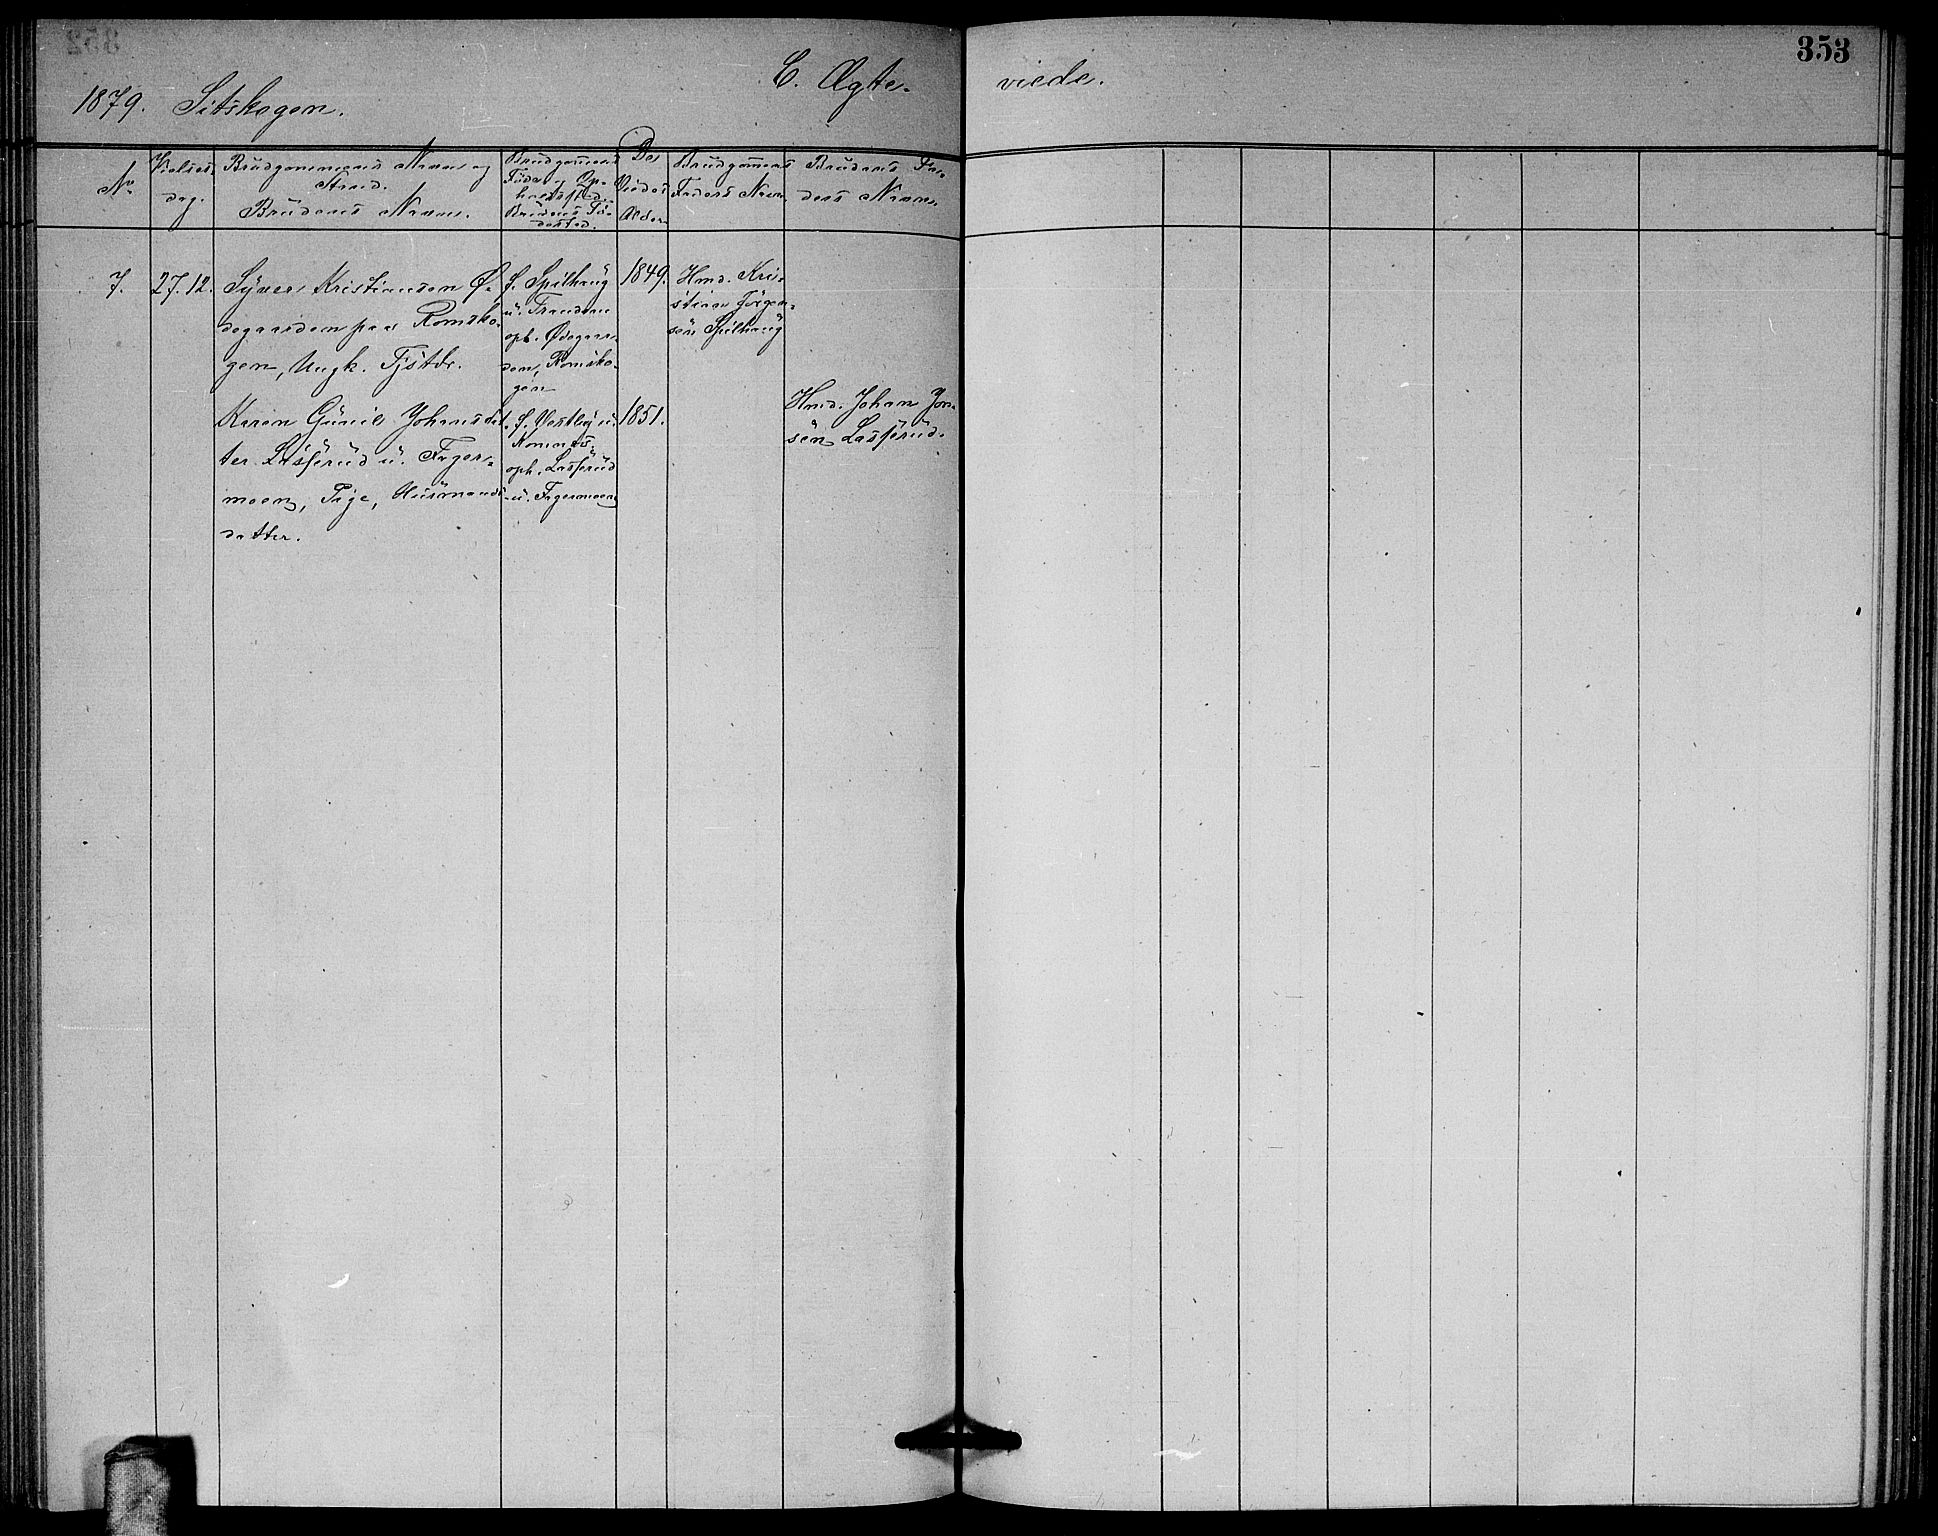 353
C. Ægte-
viede.
1879. Sitskogen.
No
Vielses
dag.
Brudgommens Navn og
Stand.
Brudens Navn.
Brudgommens
Føde og Op-
holdssted.
Brudens Fø-
dested.
De
Viedes
Alder
Brudgommens
Faders Navn
Brudens Fa-
ders Navn.
7.
27.12.
Syver Kristiansen Ø-
degaarden paa Romsko-
gen, Ungk. Tjstdr.
f. Spilhaug
u. Tranden
oph. Ødegaar-
den, Romsko-
gen
1849.
Hmd. Kri-
stian Jørgen-
sen Spilhaug
Karen Gunil Johansdat
ter Lasserud u. Fager-
moen, Pige, Husmands-
datter.
f. Vestby u.
Komnæs
oph. Lasserud
u. Fagermoen
1851.
Hmd. Johan Jon-
sen Lasserud.